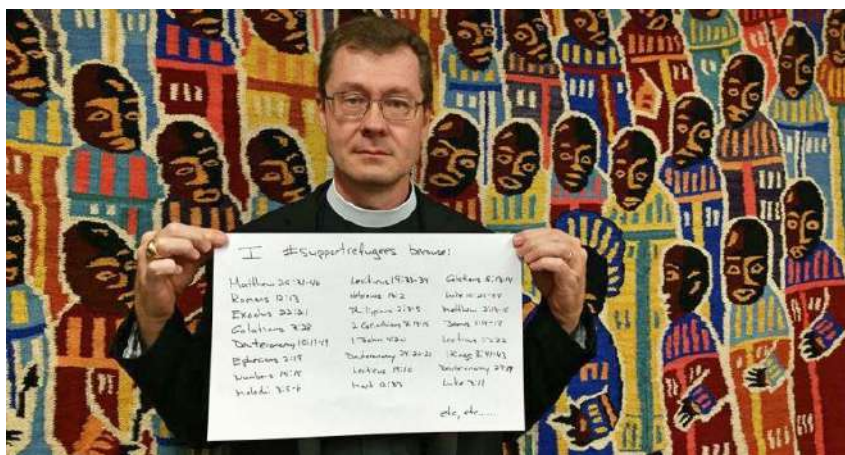 I #supportrefugees because:
Matthew 25:31-46
Romans 12:13
Exodus 22:21
Galatians 3:28
Deuteronomy 10:17-19
Ephesians 2:19
Numbers 15:15
Malachi 3:5-6
Leviticus 19:33-34
Hebrews 13:2
Philippians 2:3-5
2 Corinthians 8:13-15
1 John 4:20
Deuteronomy 24:20-21
Leviticus 19:10
Mark 12:33
Galatians 5:13-14
Luke
Matthew
James
Leviticus 23:22
1 Kings 8:41-43
Deuteronomy 27:19
Luke 3:11
etc, etc.....